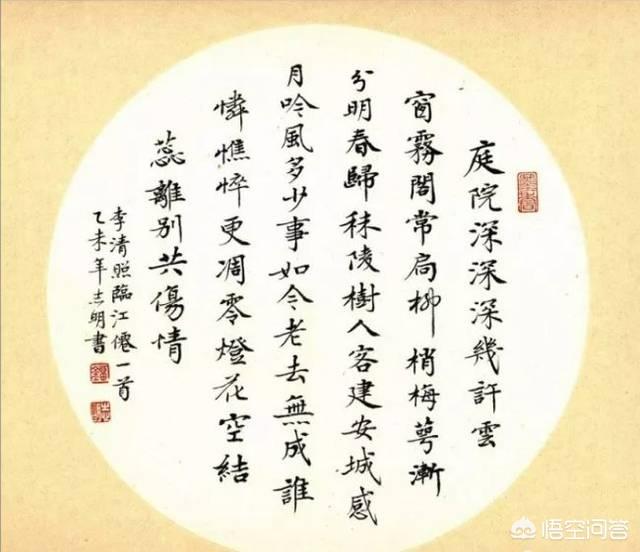 庭院深深深幾許雲
窗霧閣常扃柳梢梅萼漸
分明春歸秣陵樹人客建安城感
月吟風多少事如今老去無成誰
憐憔悴更凋零燈花空結
蕊離別共傷情
李清照臨江僊一首
乙未年志明書
悟空问答